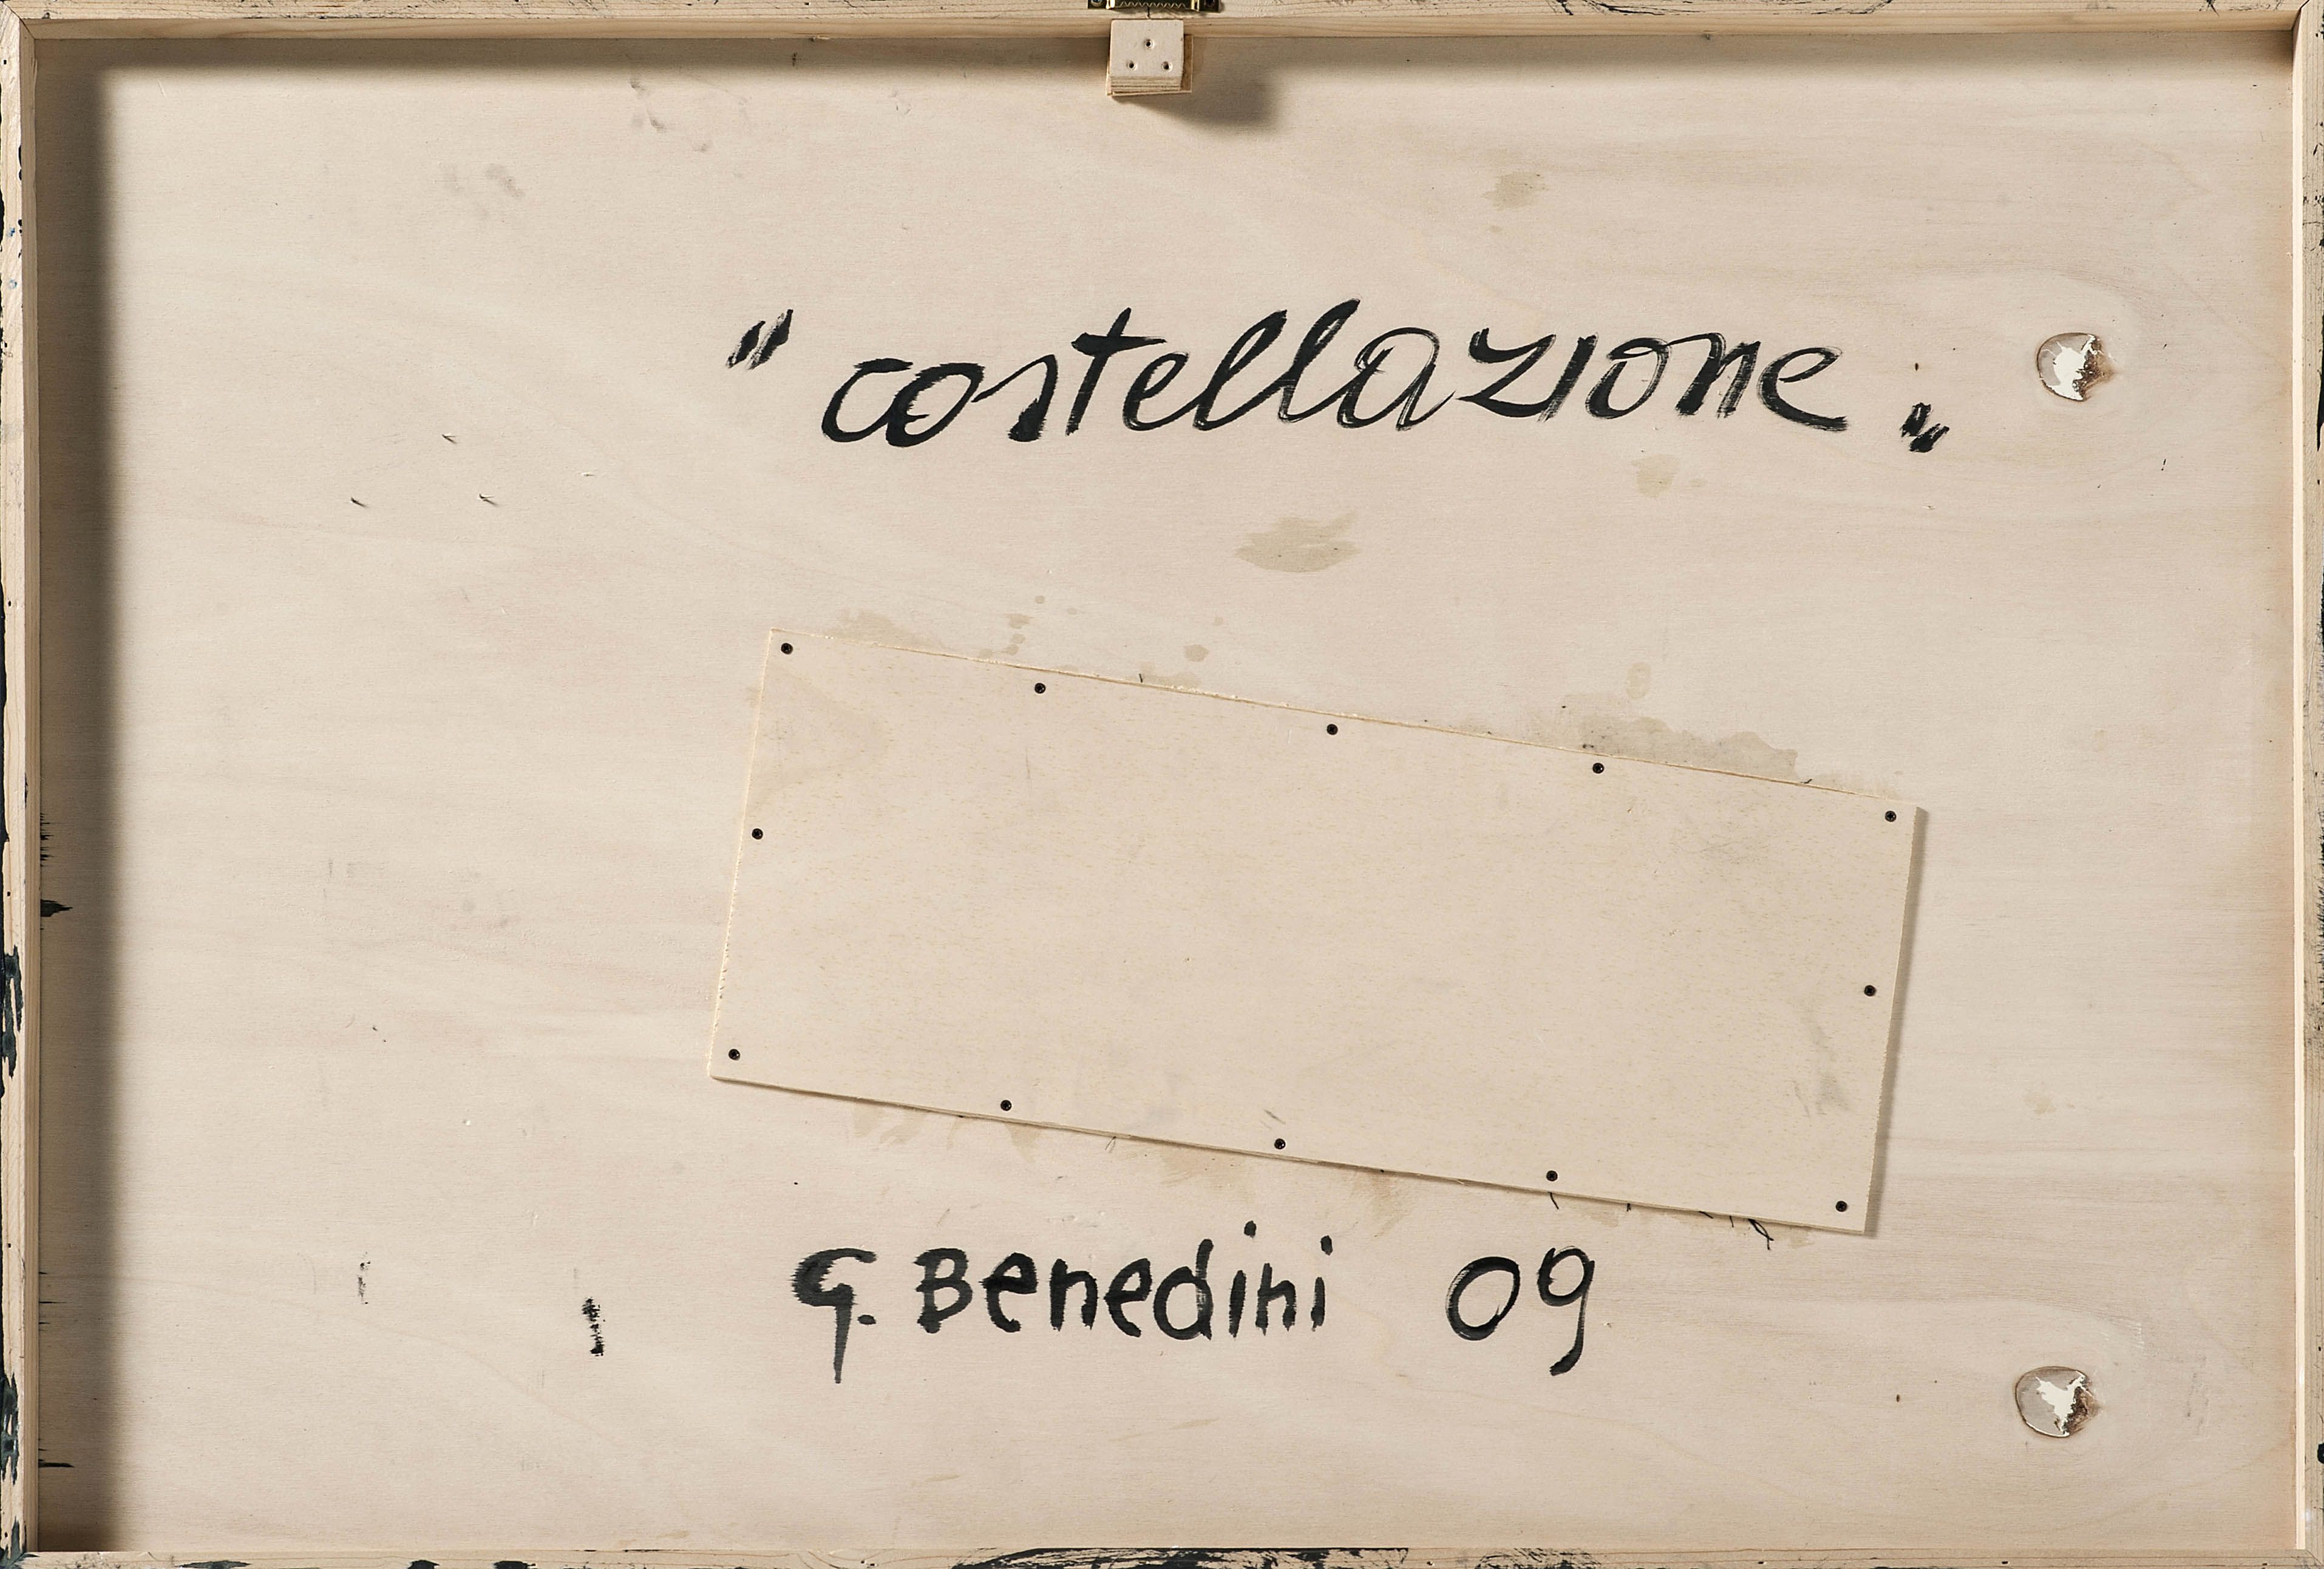 "costellazione„
G. Benedini 09